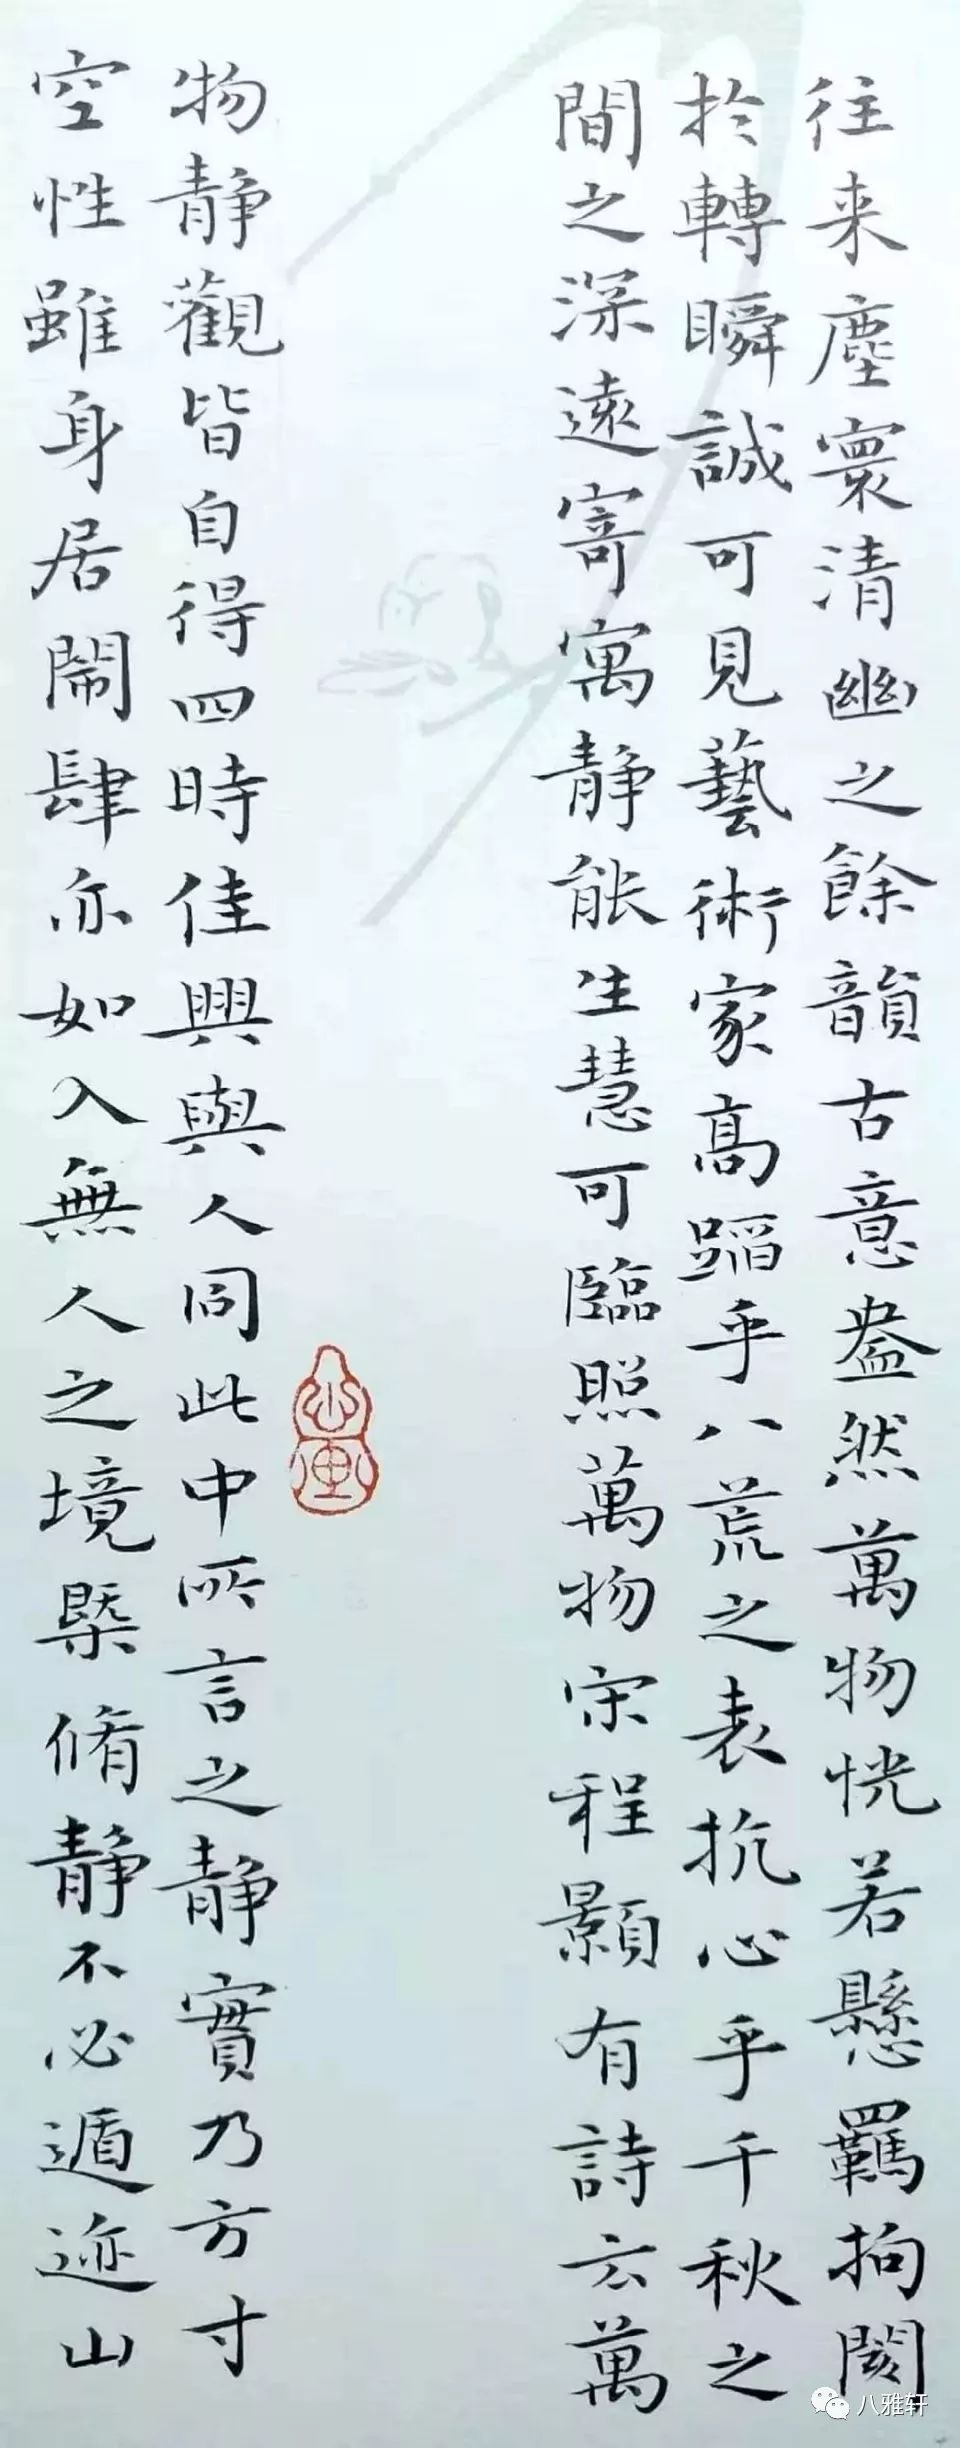 往来塵寰清幽之餘韻古意盎然萬物恍若懸羈拘閡
扵轉瞬誠可見藝術家髙蹈乎八荒之表抗心乎千秋之
間之深遠寄寓静能生慧可臨照萬物宋程顥有詩云萬
物静觀皆自得四時佳興與人同此中所言之静實乃方寸
空性雖身居鬧肆亦如入無人之境槩脩静不必遁迹山
八雅轩